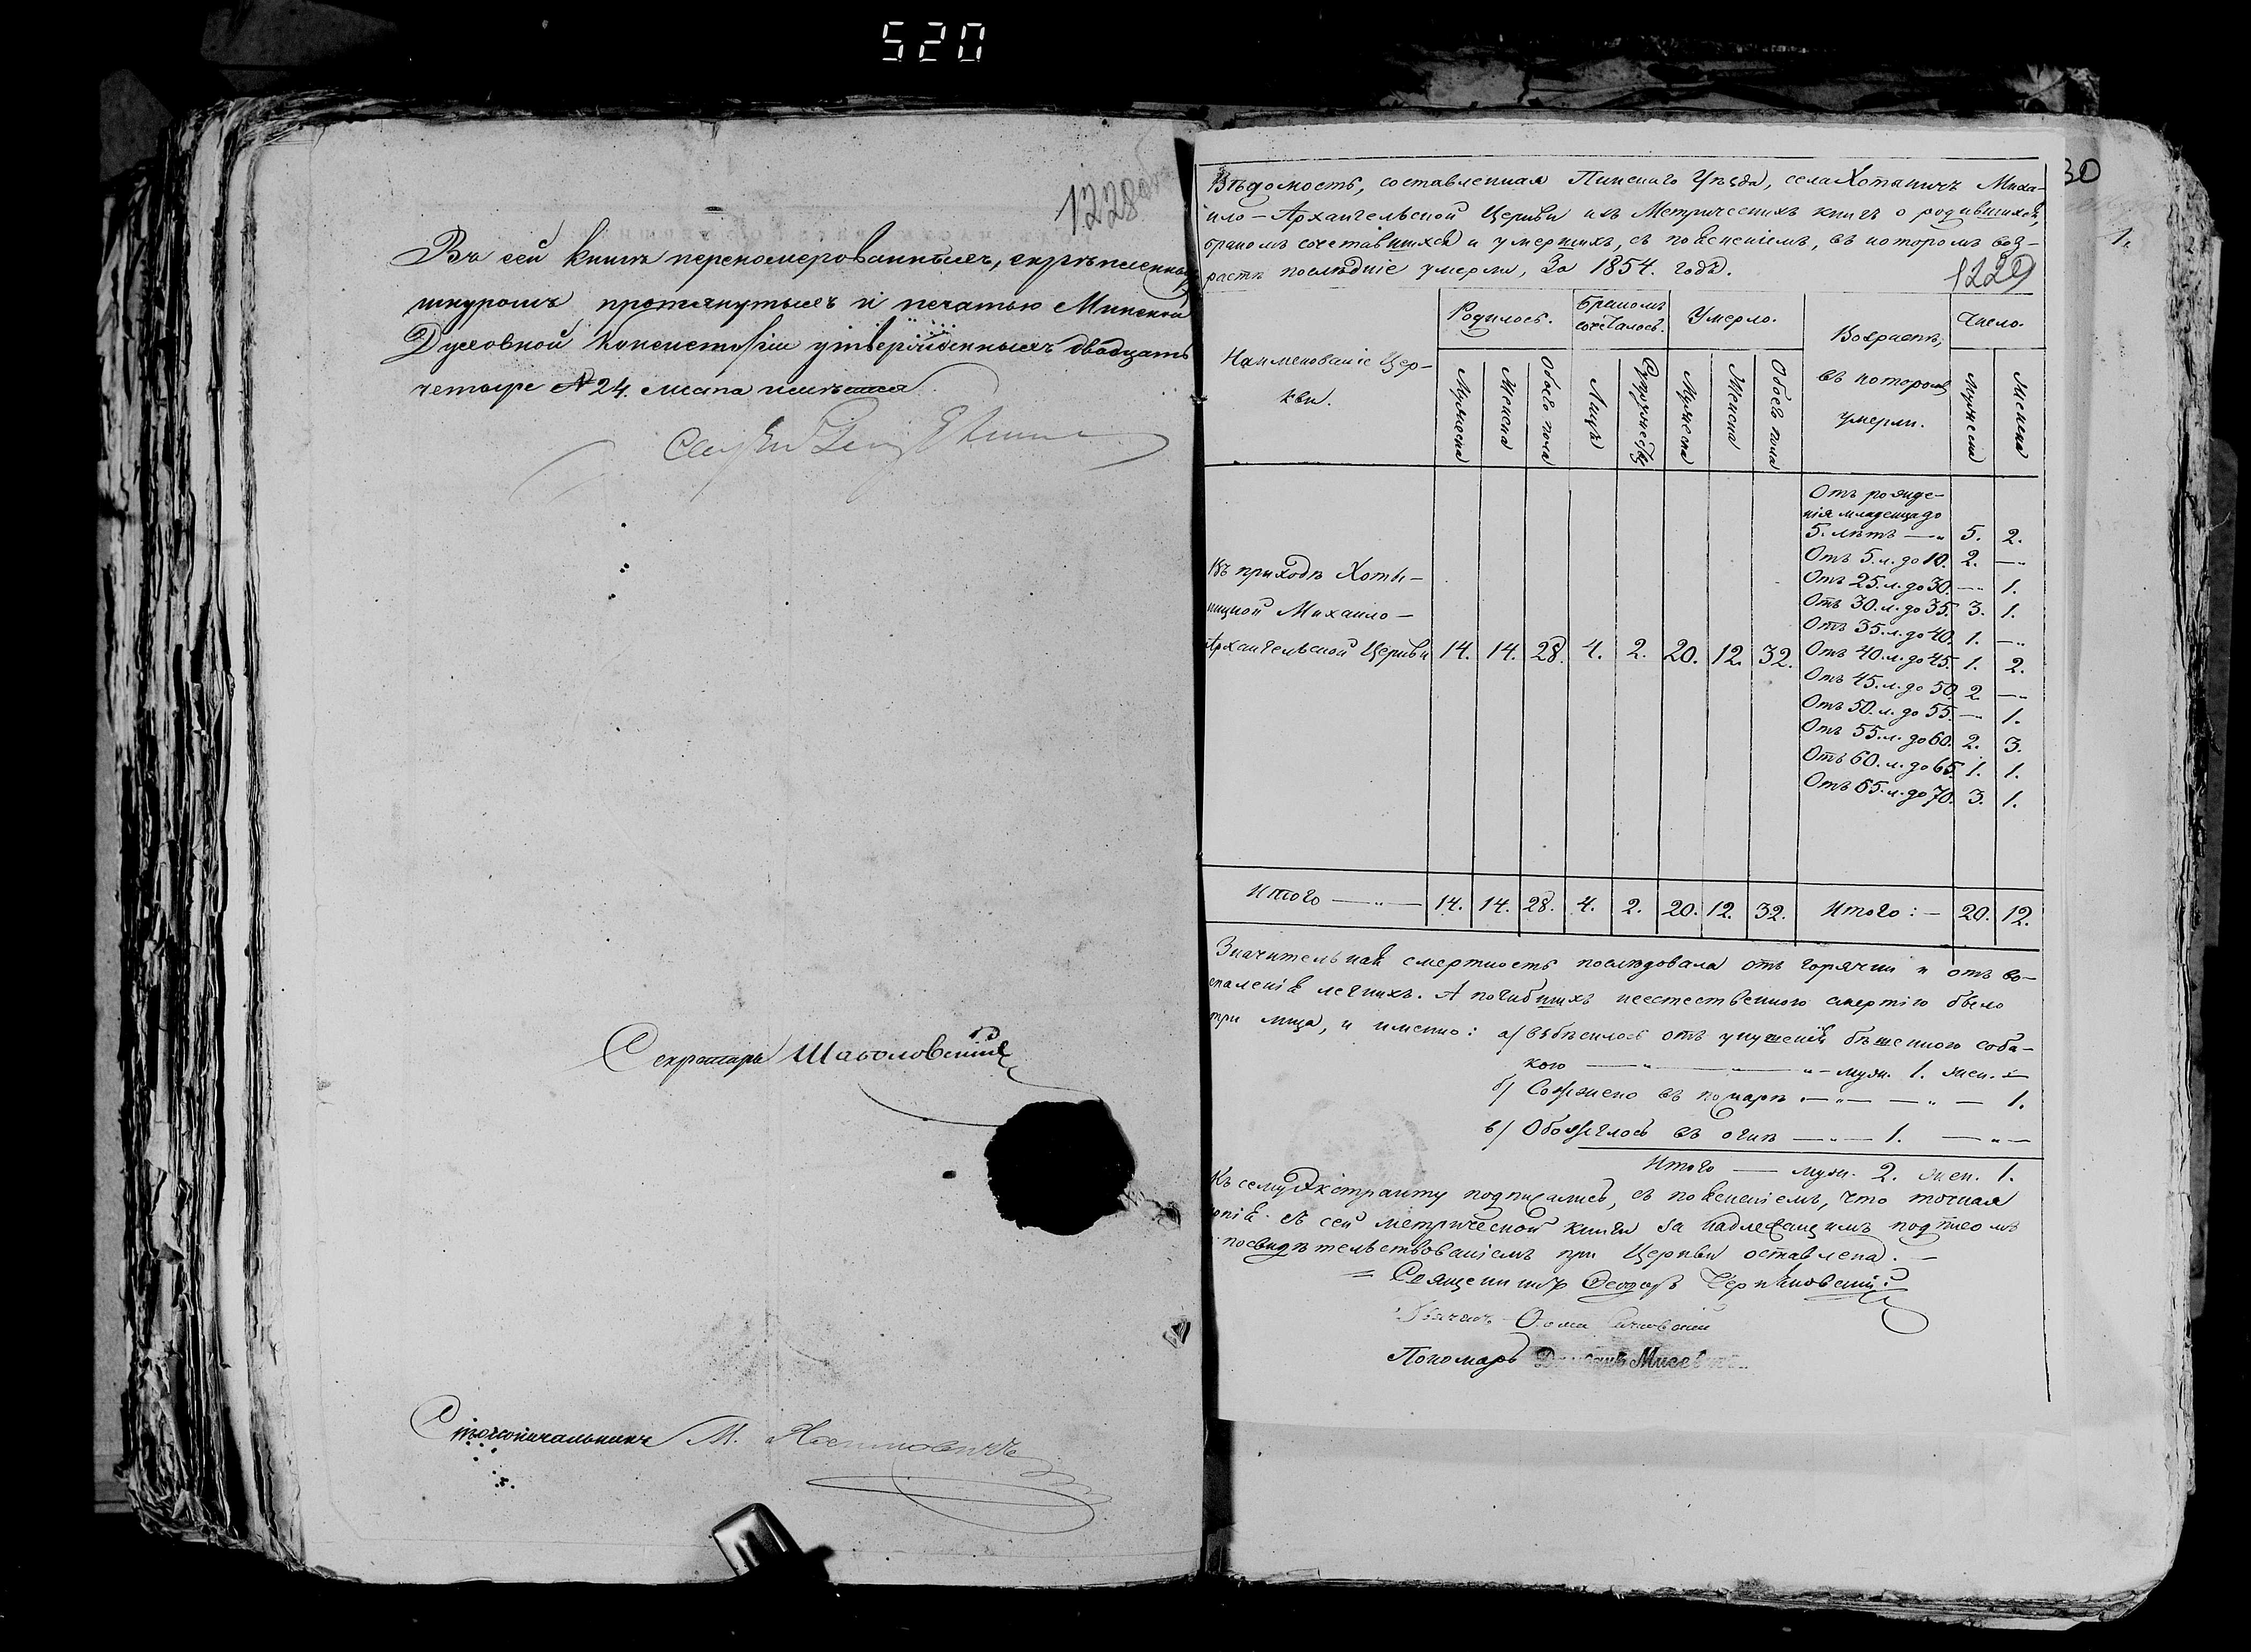 520
1228об
Въ сей книгѣ перекомерованныхъ, скрѣпленныхъ
шнуромъ протянутыхъ и печатью Минской
Духовной Консисторіи утвержденныхъ двадцать
четыре № 24. листа
Секретарь
Столоначальникъ М.
30
1.
Вѣдомость, составленная Пинскаго Уѣзда, села Хотыничъ Миха-
ило-Архангельской Церкви изъ Метрическихъ книгъ о родившихся,
бракомъ сочетавшихся и умершихъ, съ поясненіемъ, въ которомъ воз-
растѣ послѣдніе умерли, За 1854. годъ.
1229
Наименованіе Цер-
кви.
Родилось.
Бракомъ
сочеталось.
Умерло.
Возрастъ,
въ которомъ
умерли.
Число.
Мужеска
Женска
Обоего пола
Лицъ
Супружествъ
Мужеска
Женска
Обоего пола
Мужеска
Женска
Въ приходѣ Хоты-
ницкой Михаило-
Архангельской Церкви 14. 14. 28. 4. 2. 20. 12. 32.
Отъ рожде-
нія младенца до
5. лѣтъ —„ 5. 2.
Отъ 5. л. до 10. 2. —„
Отъ 25. л. до 30. —„ 1.
Отъ 30. л. до 35. 3. 1.
Отъ 35. л. до 40. 1. —„
Отъ 40. л. до 45. 1. 2.
Отъ 45. л. до 50. 2. —„
Отъ 50. л. до 55. —„ 1.
Отъ 55. л. до 60. 2. 3.
Отъ 60. л. до 65. 1. 1.
Отъ 65. л. до 70. 3. 1.
Итого —„— 14. 14. 28. 4. 2. 20. 12. 32. Итого: — 20. 12.
Значительная смертность послѣдовала отъ горячки и отъ во-
спаленія легкихъ. А погибшихъ неестественною смертію было
три лица, и именно: а) взбѣсилось отъ укушенія бѣшенною соба-
кою —„— „— муж. 1. жен. —
б) Сожжено въ пожарѣ —„— —„— 1.
в) Обожглось въ огнѣ —„— 1. —„—
Итого — муж. 2. жен. 1.
Къ сему Экстракту подписались, съ поясненіемъ, что точная
копія съ сей метрической книги за надлежащимъ подписомъ
и посвидѣтельствованіемъ при Церкви оставлена. —
Священникъ Ѳеодоръ
Дьячекъ Ѳома
Пономарь